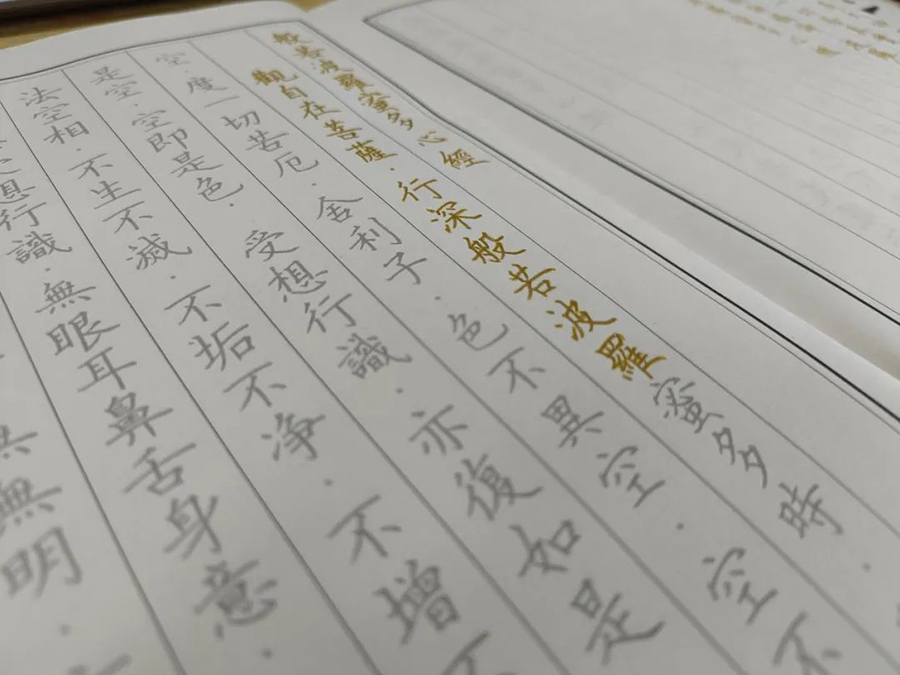 般若波羅蜜多心經
觀自在菩薩.行深般若波羅蜜多時.
空.度一切苦厄.舍利子.色不異空.空不
是空.空即是色.受想行識.亦復如是
法空相.不生不滅.不垢不净.不增不
想行識.無眼耳鼻舌身意.
無明.